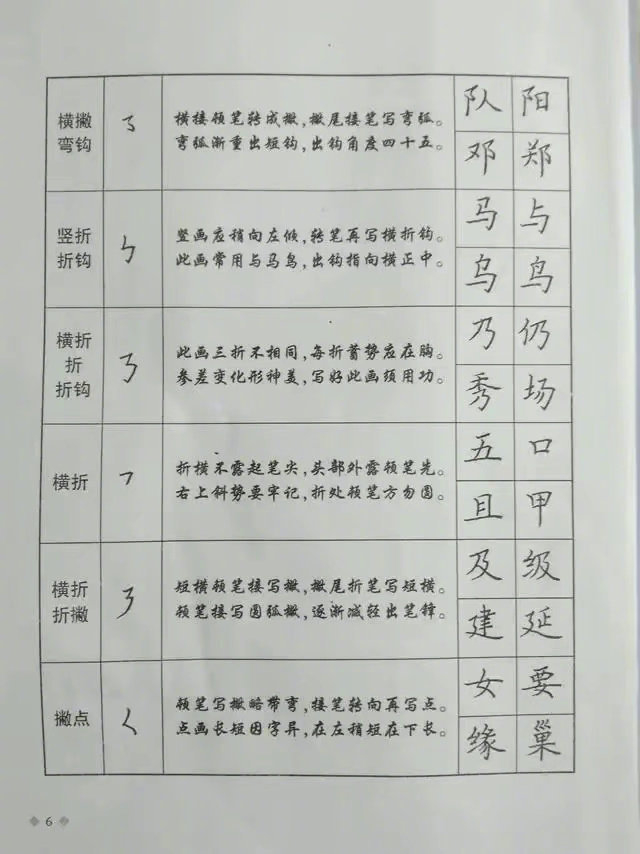 横撇
弯钩
㇌
横接顿笔转成撇,撇尾接笔写弯弧。
弯弧渐重出短钩,出钩角度四十五。
队 阳
邓 郑
竖折
折钩
㇉
竖画应稍向左倾,转笔再写横折钩。
此画常用与马鸟,出钩指向横正中。
马 与
乌 鸟
横折
折
折钩
㇡
此画三折不相同,每折蓄势应在胸。
参差变化形神美,写好此画须用功。
乃 仍
秀 场
横折
㇕
折横不露起笔尖,头部外露顿笔先。
右上斜势要牢记,折处顿笔方勿圆。
五 口
且 甲
横折
折撇
㇋
短横顿笔接写撇,撇尾折笔写短横。
顿笔接写圆弧撇,逐渐减轻出笔锋。
及 级
建 延
撇点
㇛
顿笔写撇略带弯,接笔转向再写点。
点画长短因字异,在左稍短在下长。
女 要
缘 巢
6